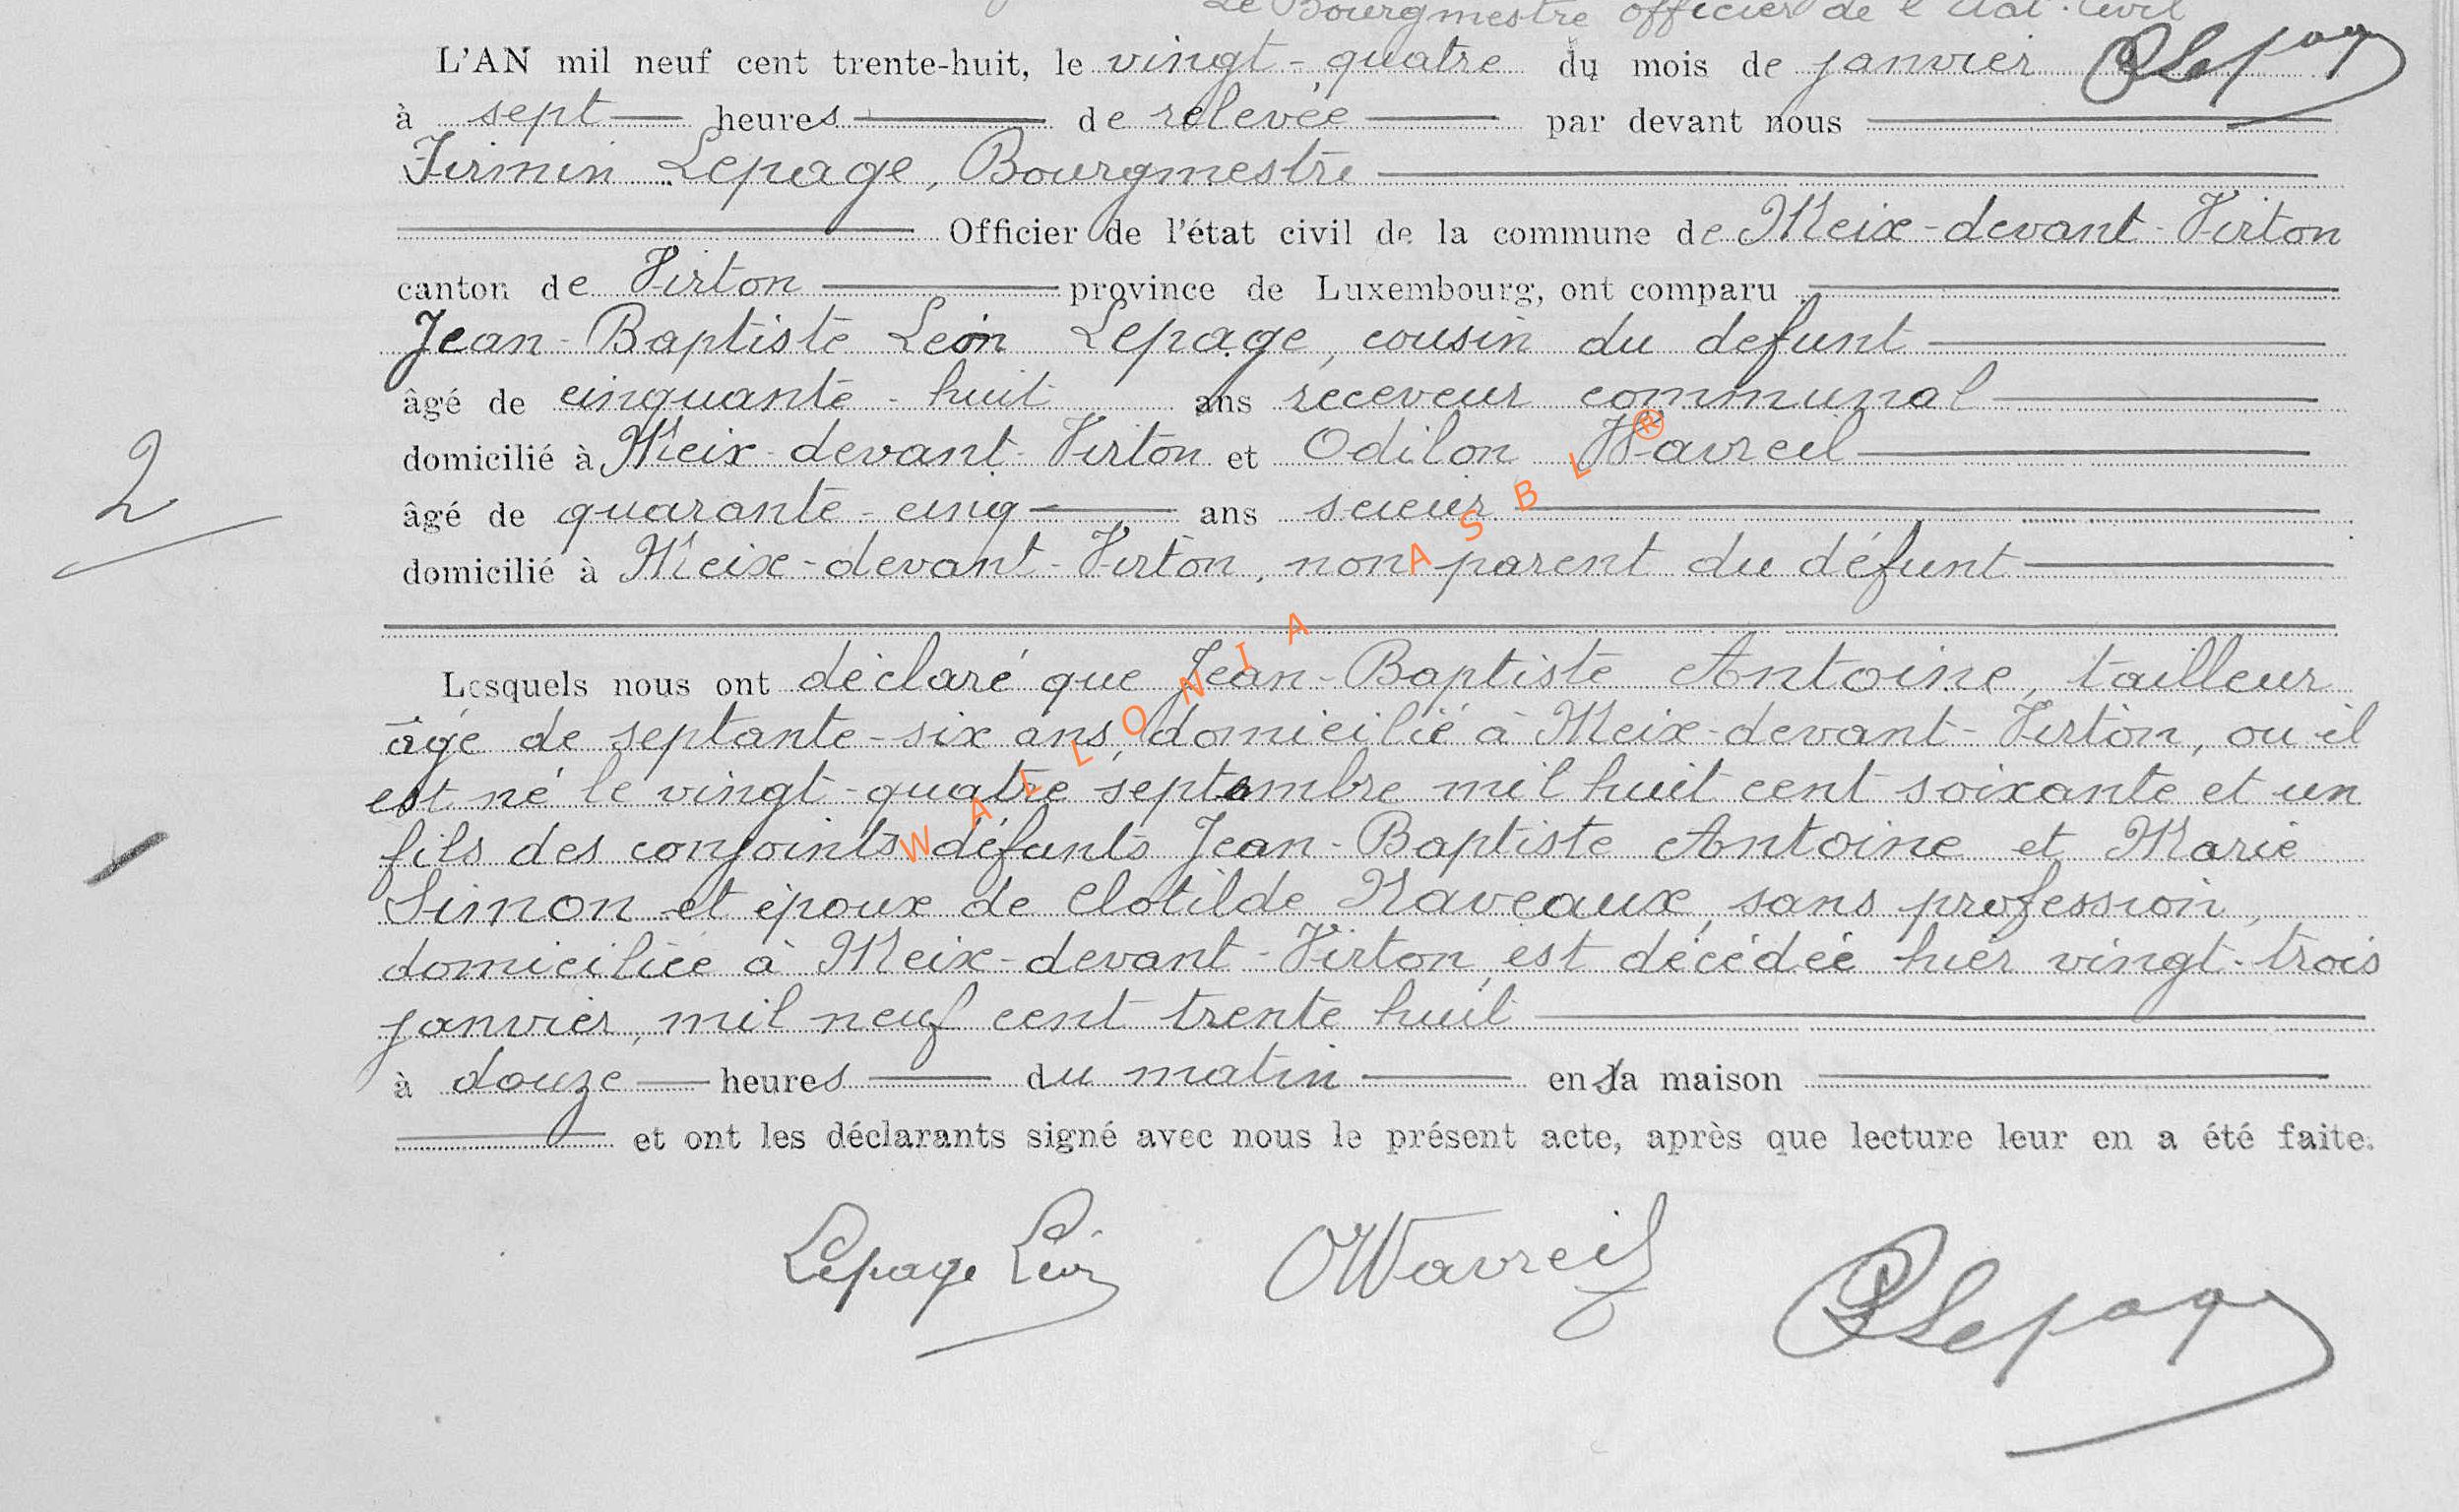 Le Bourgmestre officier de l'état-civil
L'AN mil neuf cent trente-huit, le vingt-quatre du mois de janvier Lepage
à sept heures de relevée par devant nous
Firmin Lepage, Bourgmestre
Officier de l'état civil de la commune de Meix-devant-Virton
canton de Virton province de Luxembourg, ont comparu
Jean-Baptiste Léon Lepage, cousin du defunt
âgé de cinquante-huit ans receveur communal
domicilié à Meix-devant-Virton et Odilon Wavreil
âgé de quarante-cinq ans scieur
domicilié à Meix-devant-Virton, non parent du défunt
Lesquels nous ont déclaré que Jean-Baptiste Antoine, tailleur
âgé de septante-six ans, domicilié à Meix-devant-Virton, ou il
est né le vingt-quatre septembre mil huit cent soixante et un
fils des conjoints défunts Jean-Baptiste Antoine et Marie
Simon et époux de Clotilde Naveaux, sans profession,
domiciliée à Meix-devant-Virton, est décédée hier vingt-trois
janvier, mil neuf cent trente huit
à douze heures du matin en sa maison
et ont les déclarants signé avec nous le présent acte, après que lecture leur en a été faite.
Lepage Léon OWavreil Lepage
2
WALLONIA ASBL ®